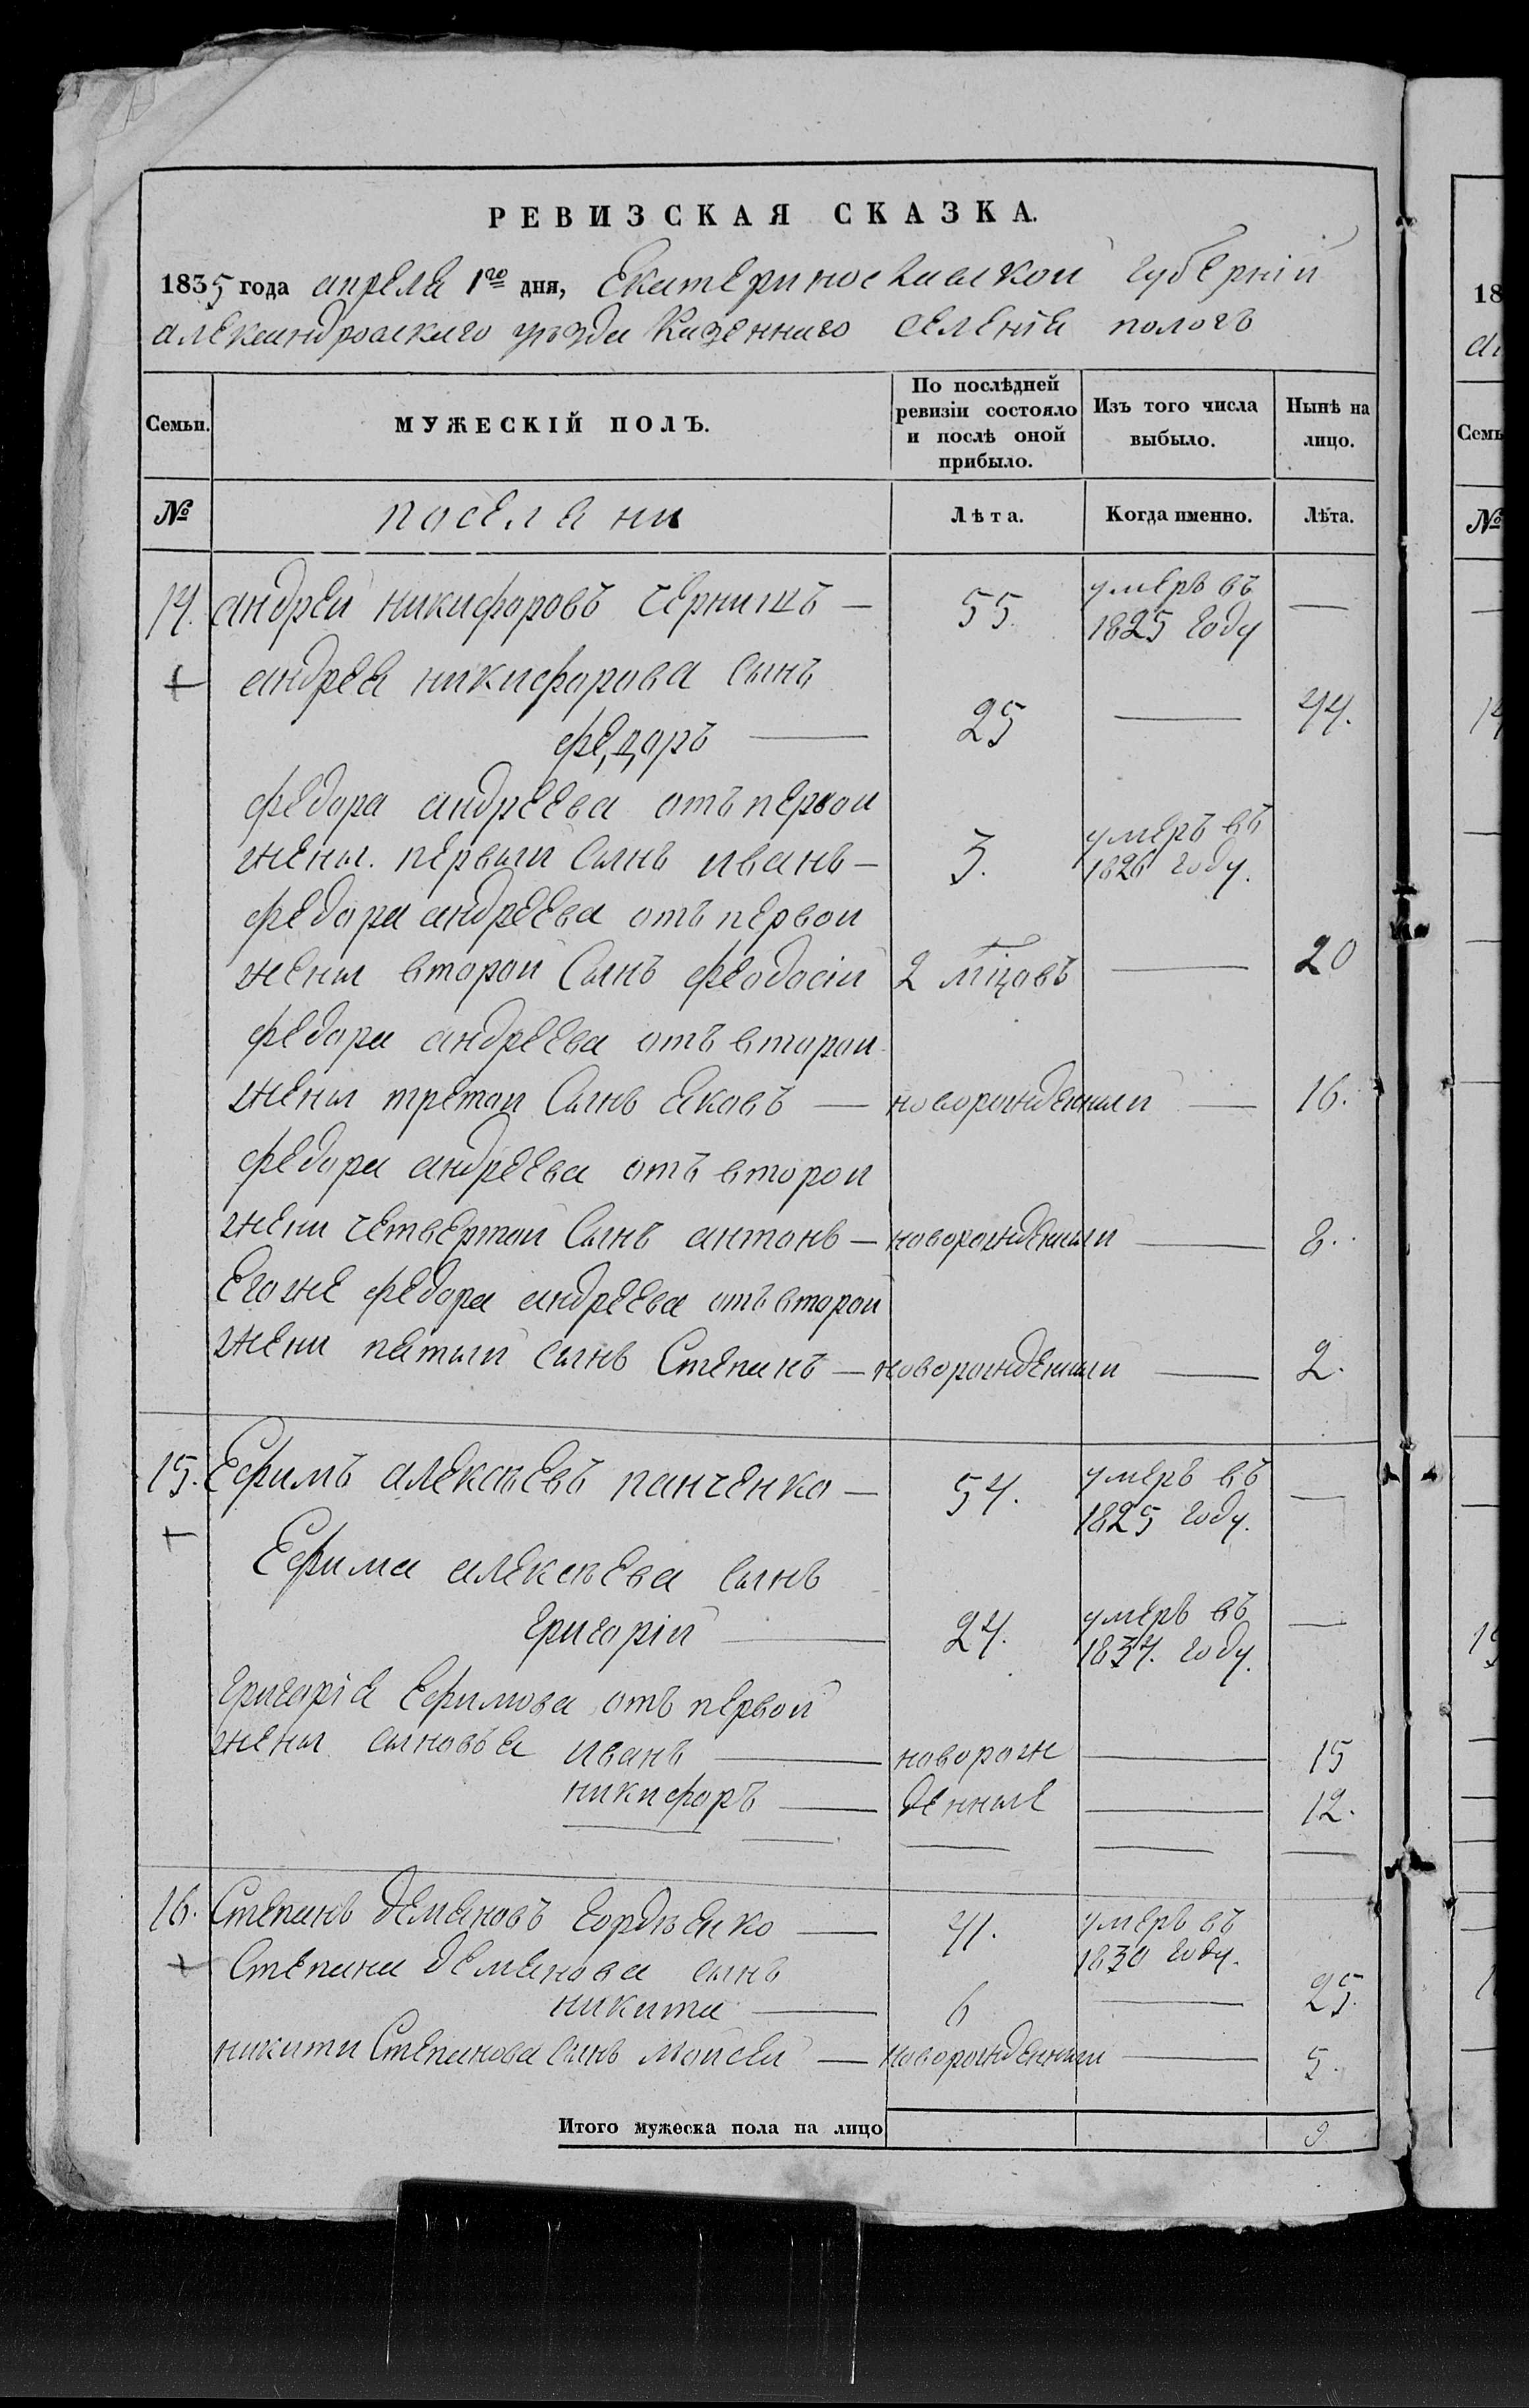 РЕВИЗСКАЯ СКАЗКА.
1835 года апреля 1го дня, Екатеринославской губернiи
александровскаго уѣзда казеннаго селенiя пологъ
Семьи.
МУЖЕСКІЙ ПОЛЪ.
По послѣдней ревизіи состояло и послѣ оной прибыло.
Изъ того числа выбыло.
Нынѣ на лицо.
№
поселяни
Лѣта.
Когда именно.
Лѣта.
14. андрей никифоровъ чернишъ — 55. умеръ въ 1825 году —
андрея никифорова сынъ
федоръ — 25 — 44.
федора андреева отъ первои
жены. первыи сынъ иванъ — 3. умеръ въ 1826 году.
федора андреева отъ первои
жены второй сынъ феодосiй 2 мҍцовъ — 20
федора андреева отъ второи
жены третои сынъ яковъ — новорожденныи — 16.
федора андреева отъ второи
жени четвертой сынъ антонъ — новорожденныи — 8.
его же федора андреева отъ второй
жени пятыи сынъ Степанъ — новорожденныи — 2.
15. Ефимъ алексѣевъ панченко — 54. умеръ въ 1825 году. —
Ефима алексѣева сынъ
григорiй — 24. умеръ въ 1834. году. —
григорiя Ефимова отъ первой
жены сыновья иванъ — новорож — 15
никифоръ — денные — 12.
16. Степанъ демяновъ гордѣенко — 41. умеръ въ 1830 году.
Степана демянова сынъ
никита — 6 — 25.
никити Степанова сынъ моисей — новорожденныи — 5.
Итого мужеска пола на лицо 9
18
Семь
№